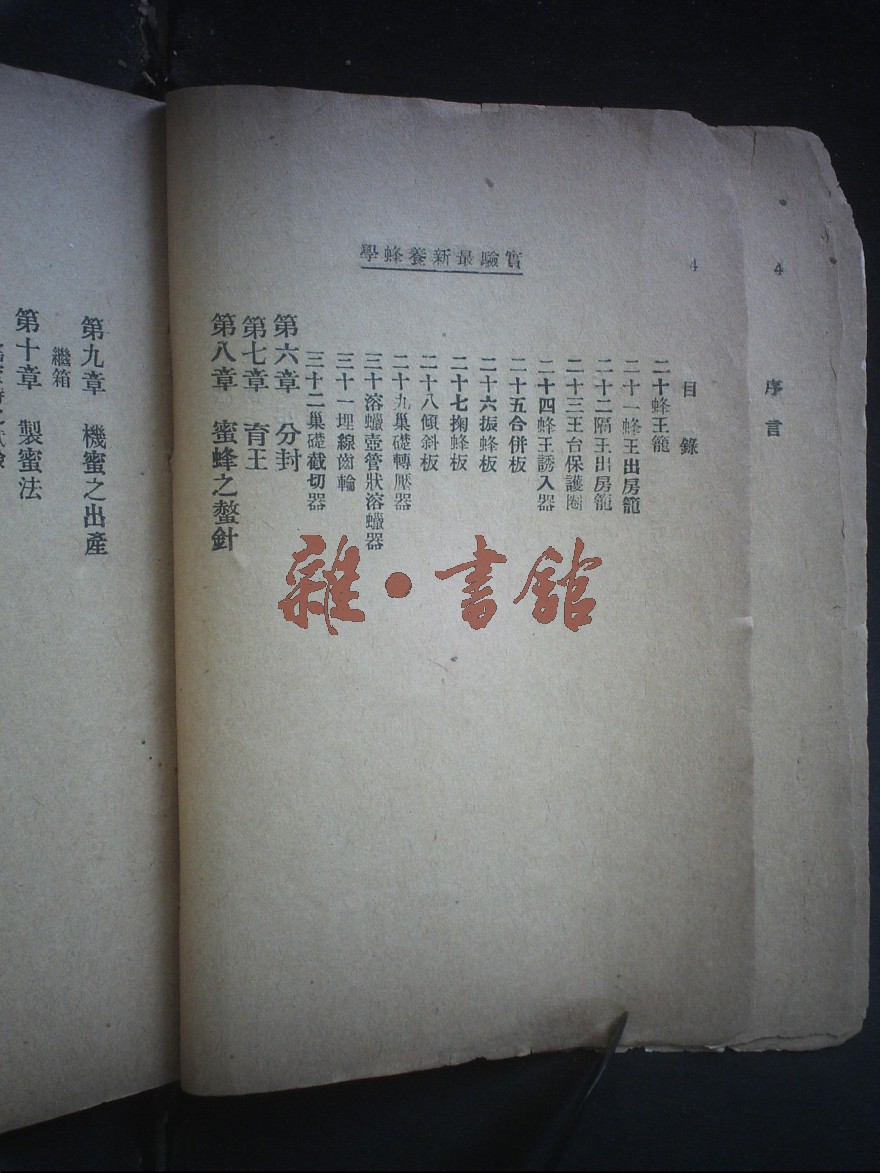 實驗最新養蜂學
4
序言
4
目錄
二十蜂王籠
二十一蜂王出房籠
二十二隔王出房籠
二十三王台保護圈
二十四蜂王誘入器
二十五合併板
二十六振蜂板
二十七掬蜂板
二十八傾斜板
二十九巢礎轉壓器
三十溶蠟壺管狀溶蠟器
三十一埋線齒輪
三十二巢礎截切器
第六章 分封
第七章 育王
第八章 蜜蜂之螫針
第九章 機蜜之出產
繼箱
第十章 製蜜法
雜·書館